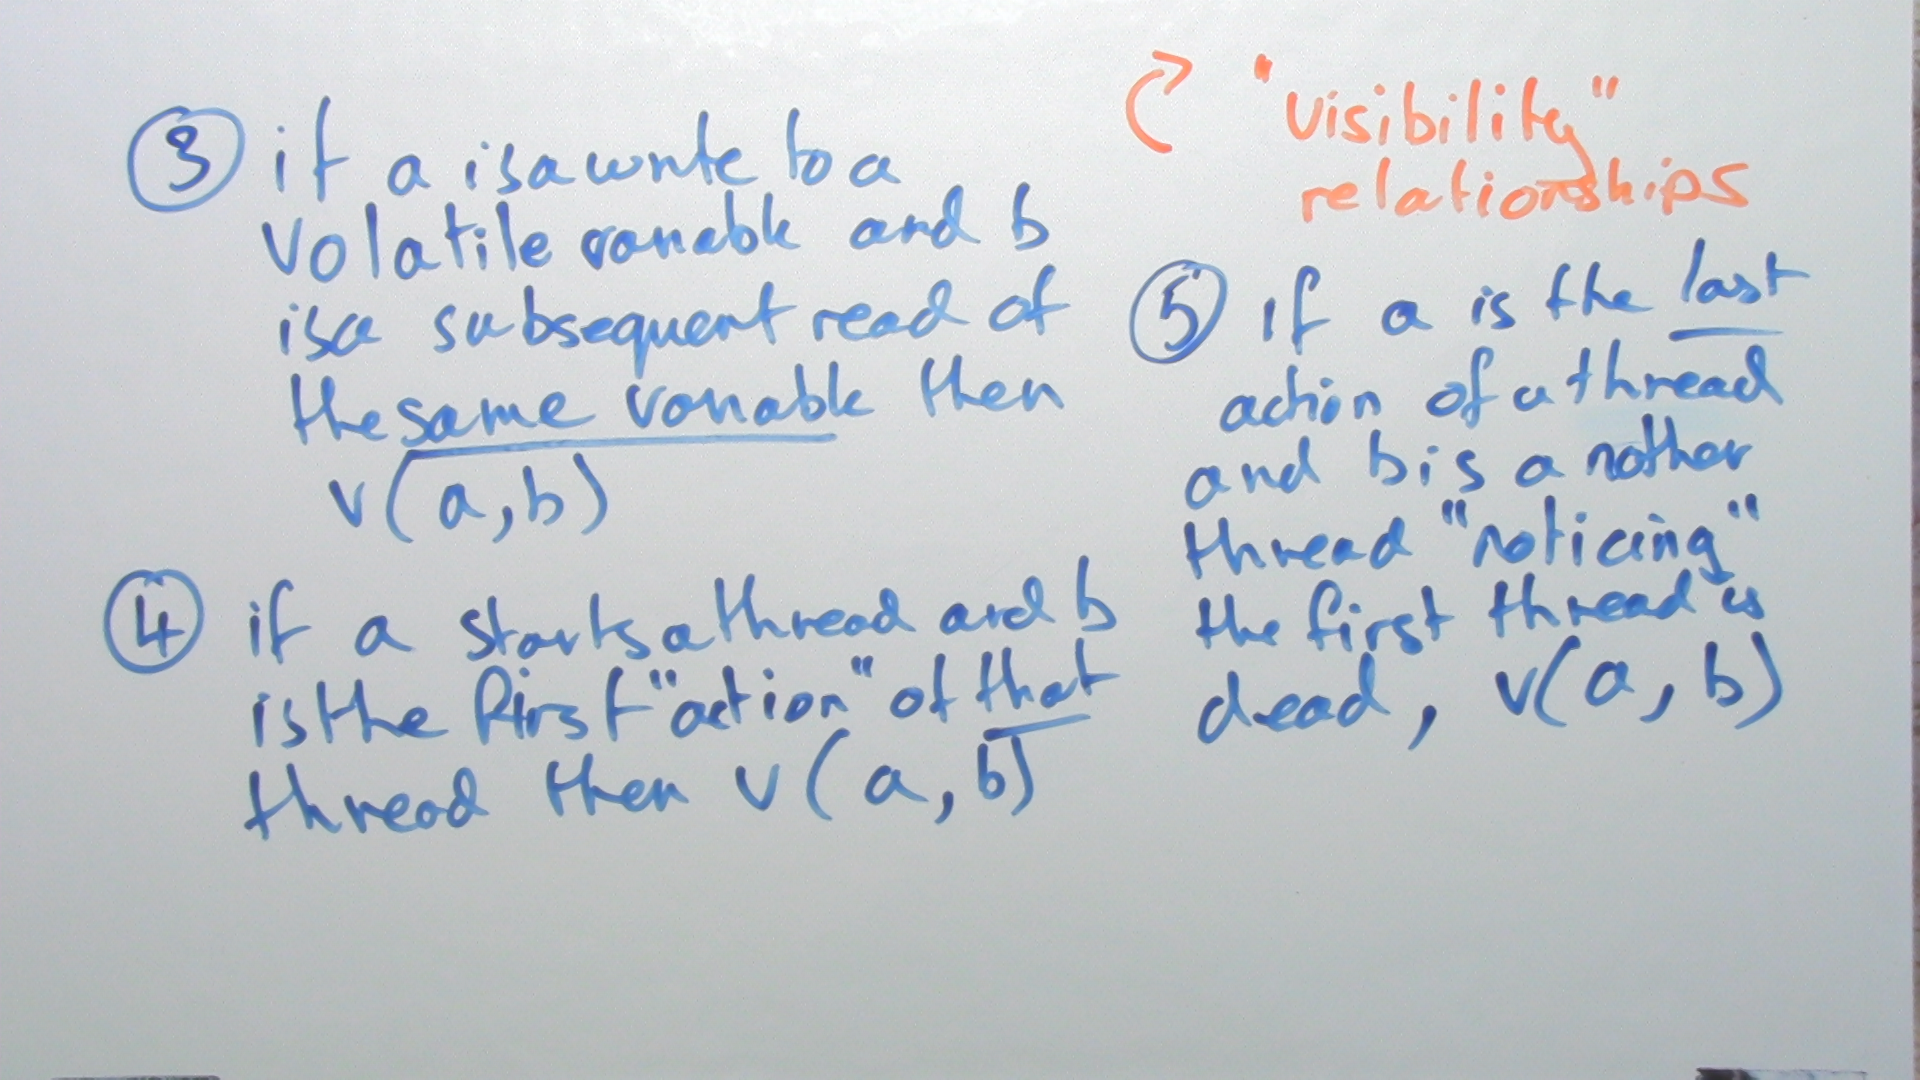 ③ if a is a write to a
volatile variable and b
is a subsequent read of
the same variable then
v(a,b)
④ if a starts a thread and b
is the first "action" of that
thread then v(a,b)
"visibility"
relationships
⑤ if a is the last
action of a thread
and b is another
thread "noticing"
the first thread is
dead, v(a,b)